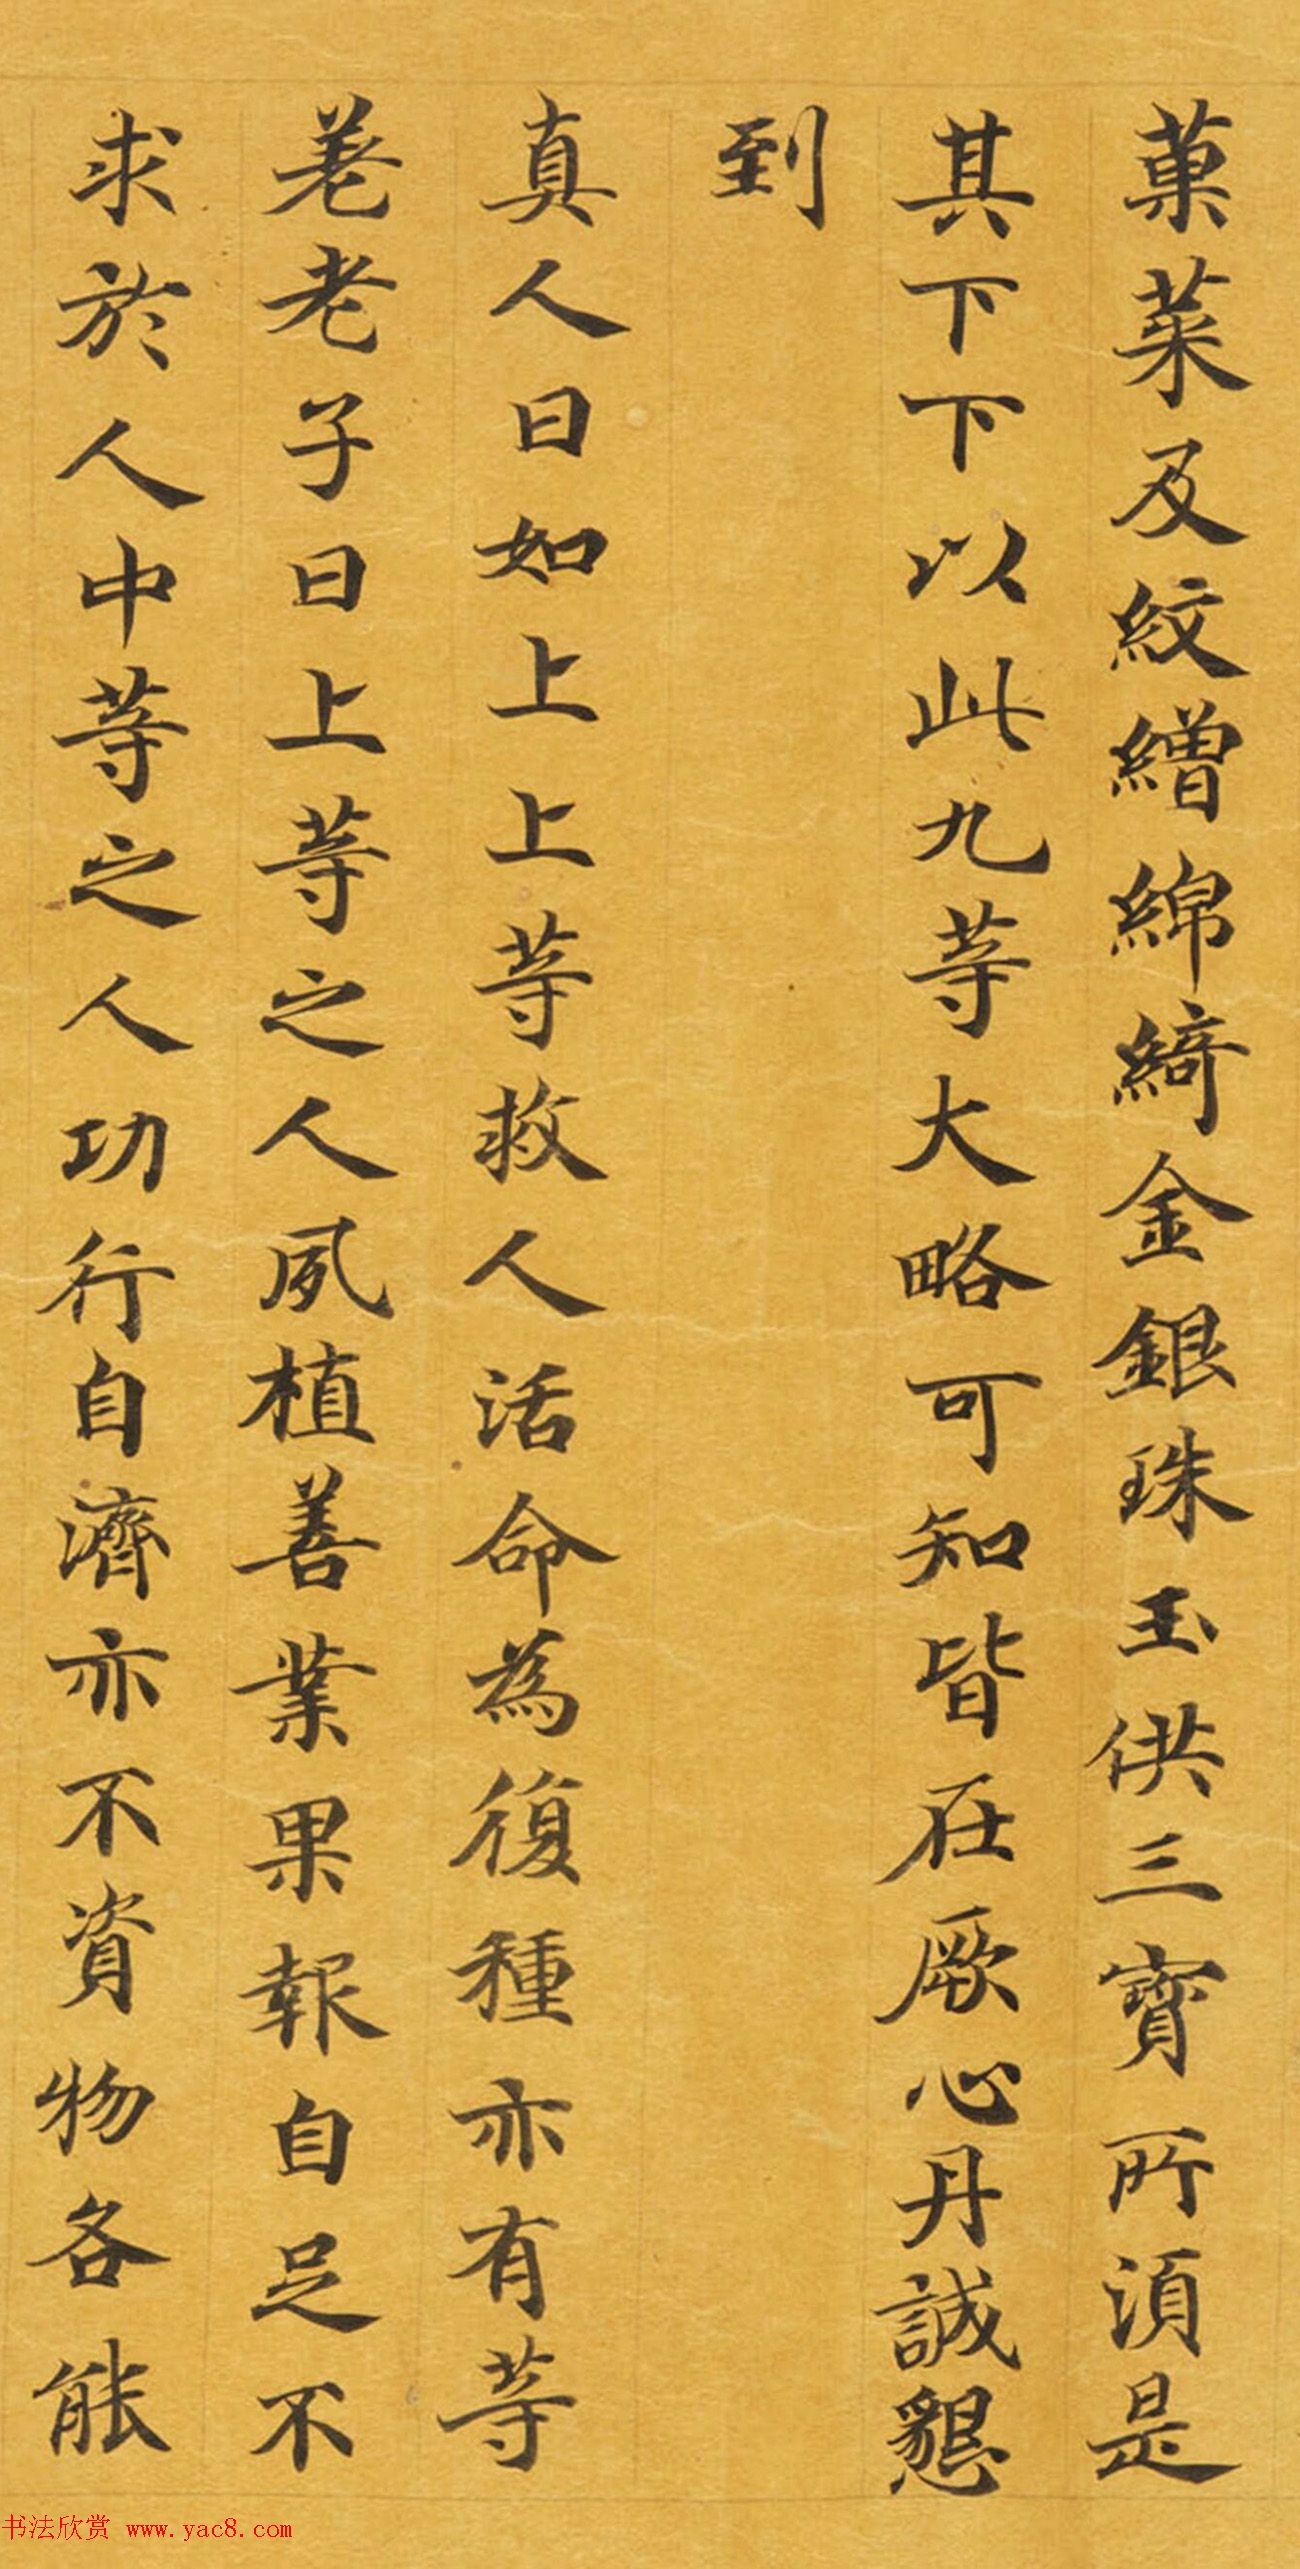 菓菜及紋繒綿綺金銀珠玉供三寶所湏是
其下下以此九等大略可知皆在厥心丹誠懇
到
真人曰如上上等救人活命為復種亦有等
差老子曰上等之人夙植善業果報自足不
求於人中等之人功行自濟亦不資物各能
书法欣赏 www.yac8.com